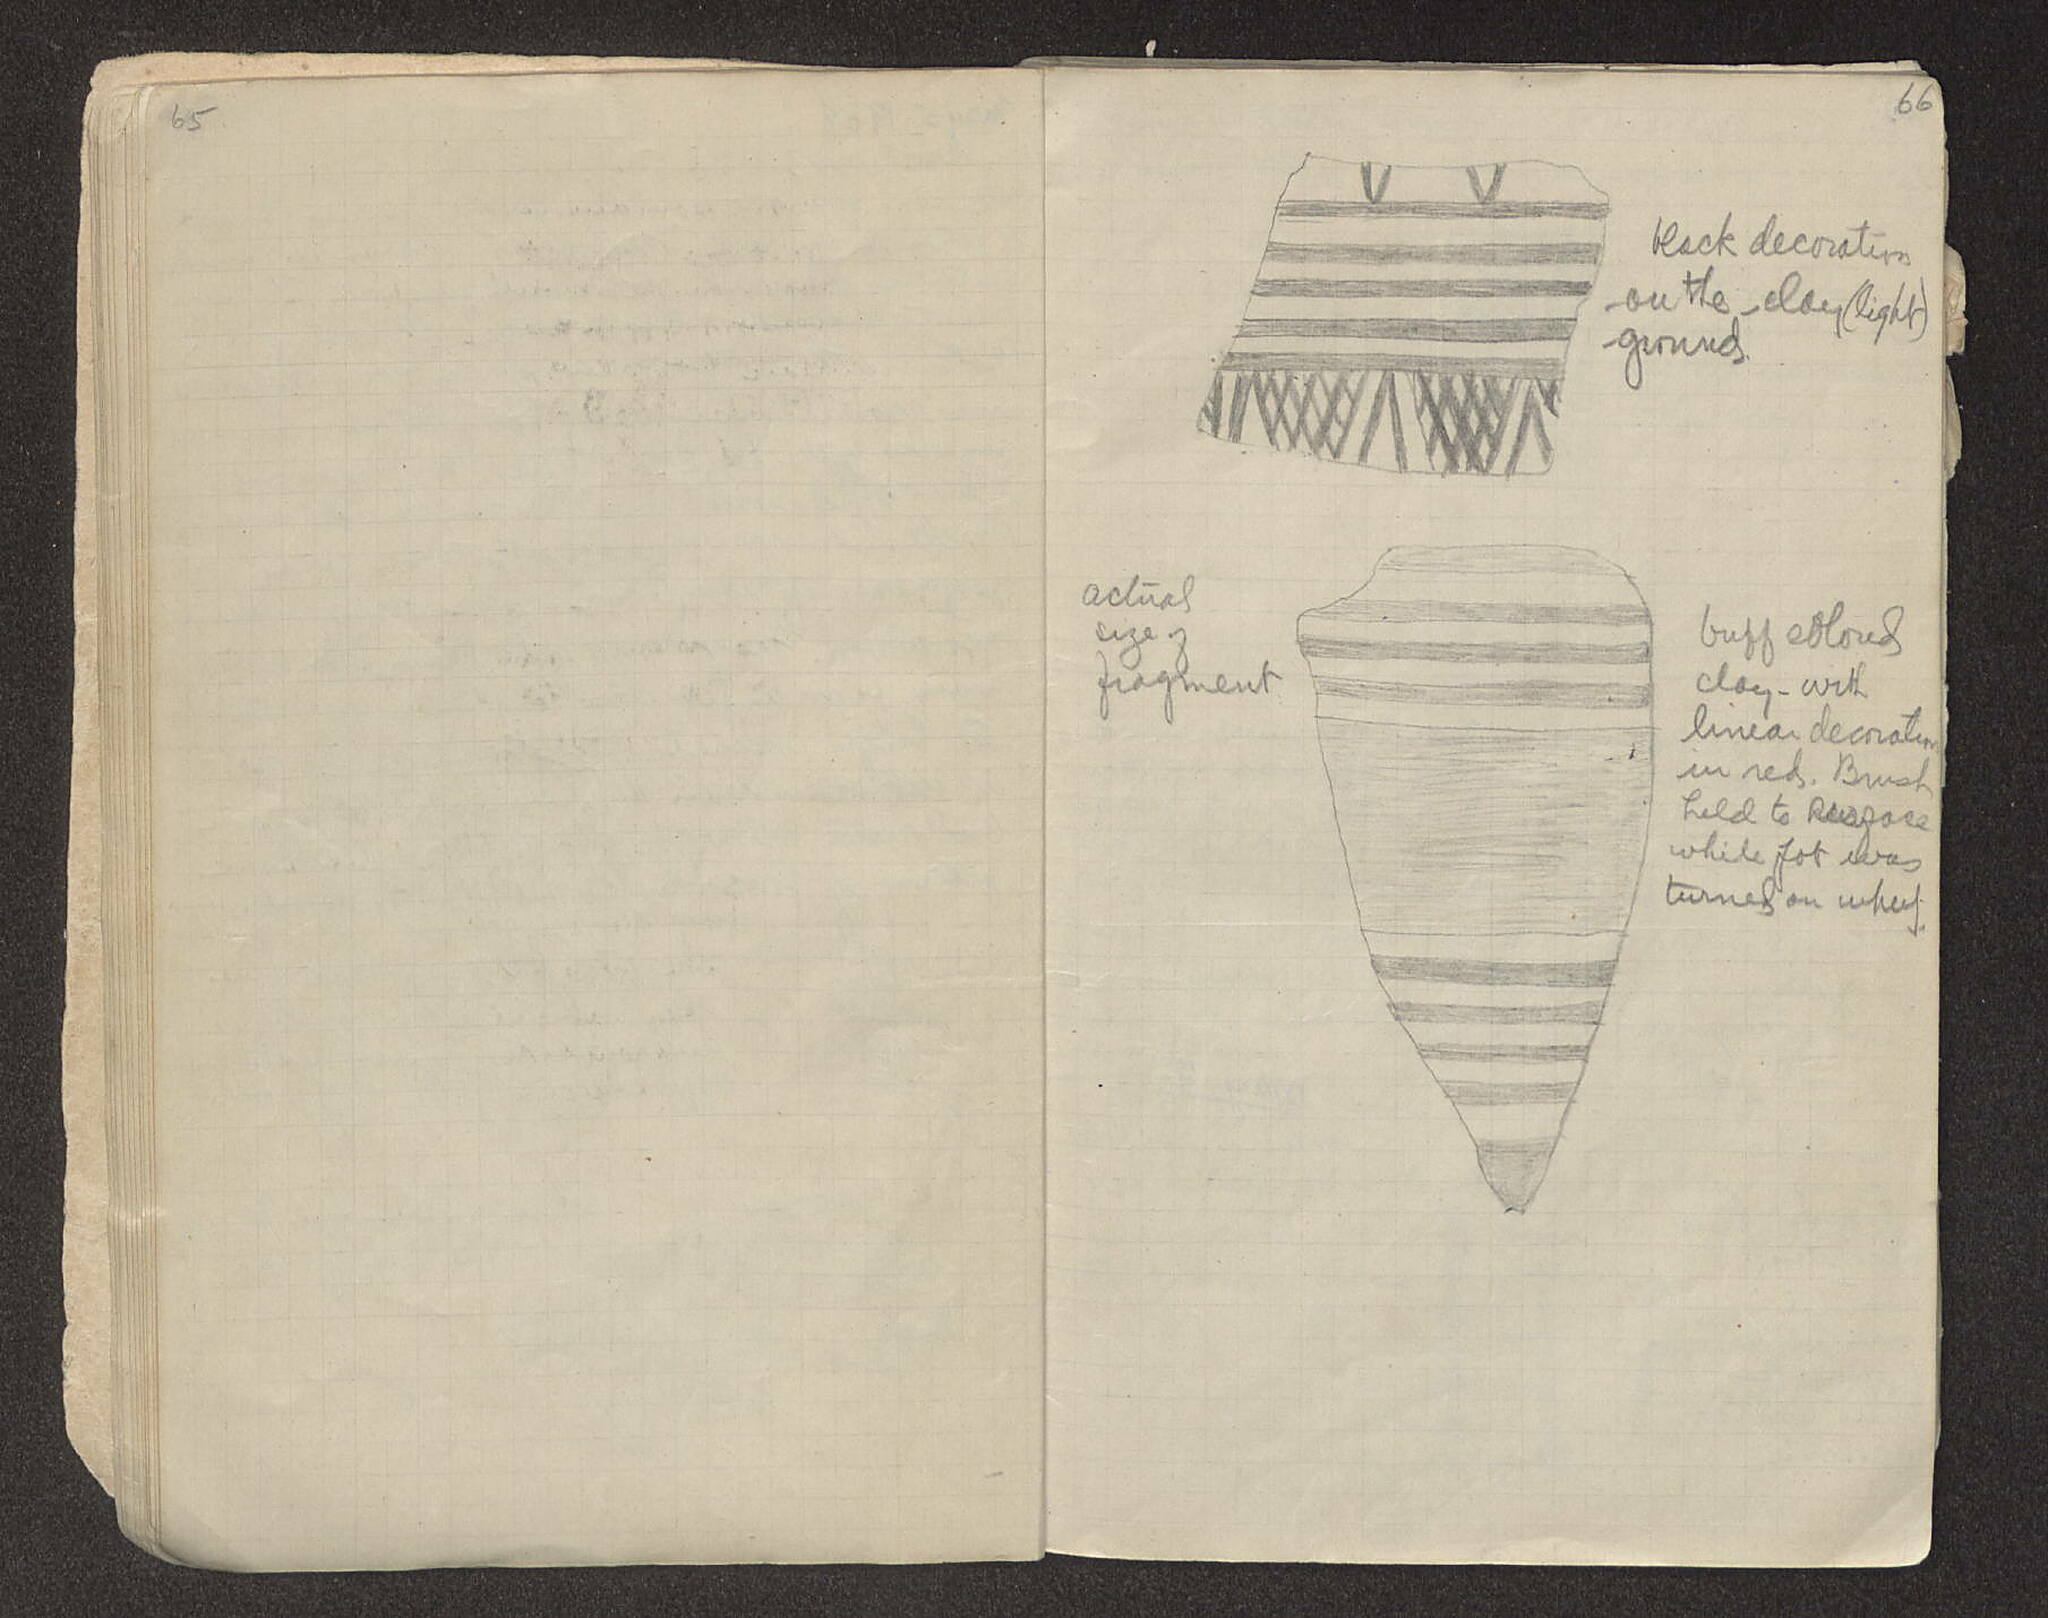 65
66
black decoration
on the clay (light)
ground.
actual
size of
fragment
buff colored
clay - with
linear decoration
in red. Brush
held to surface
while pot was
turned on wheel.